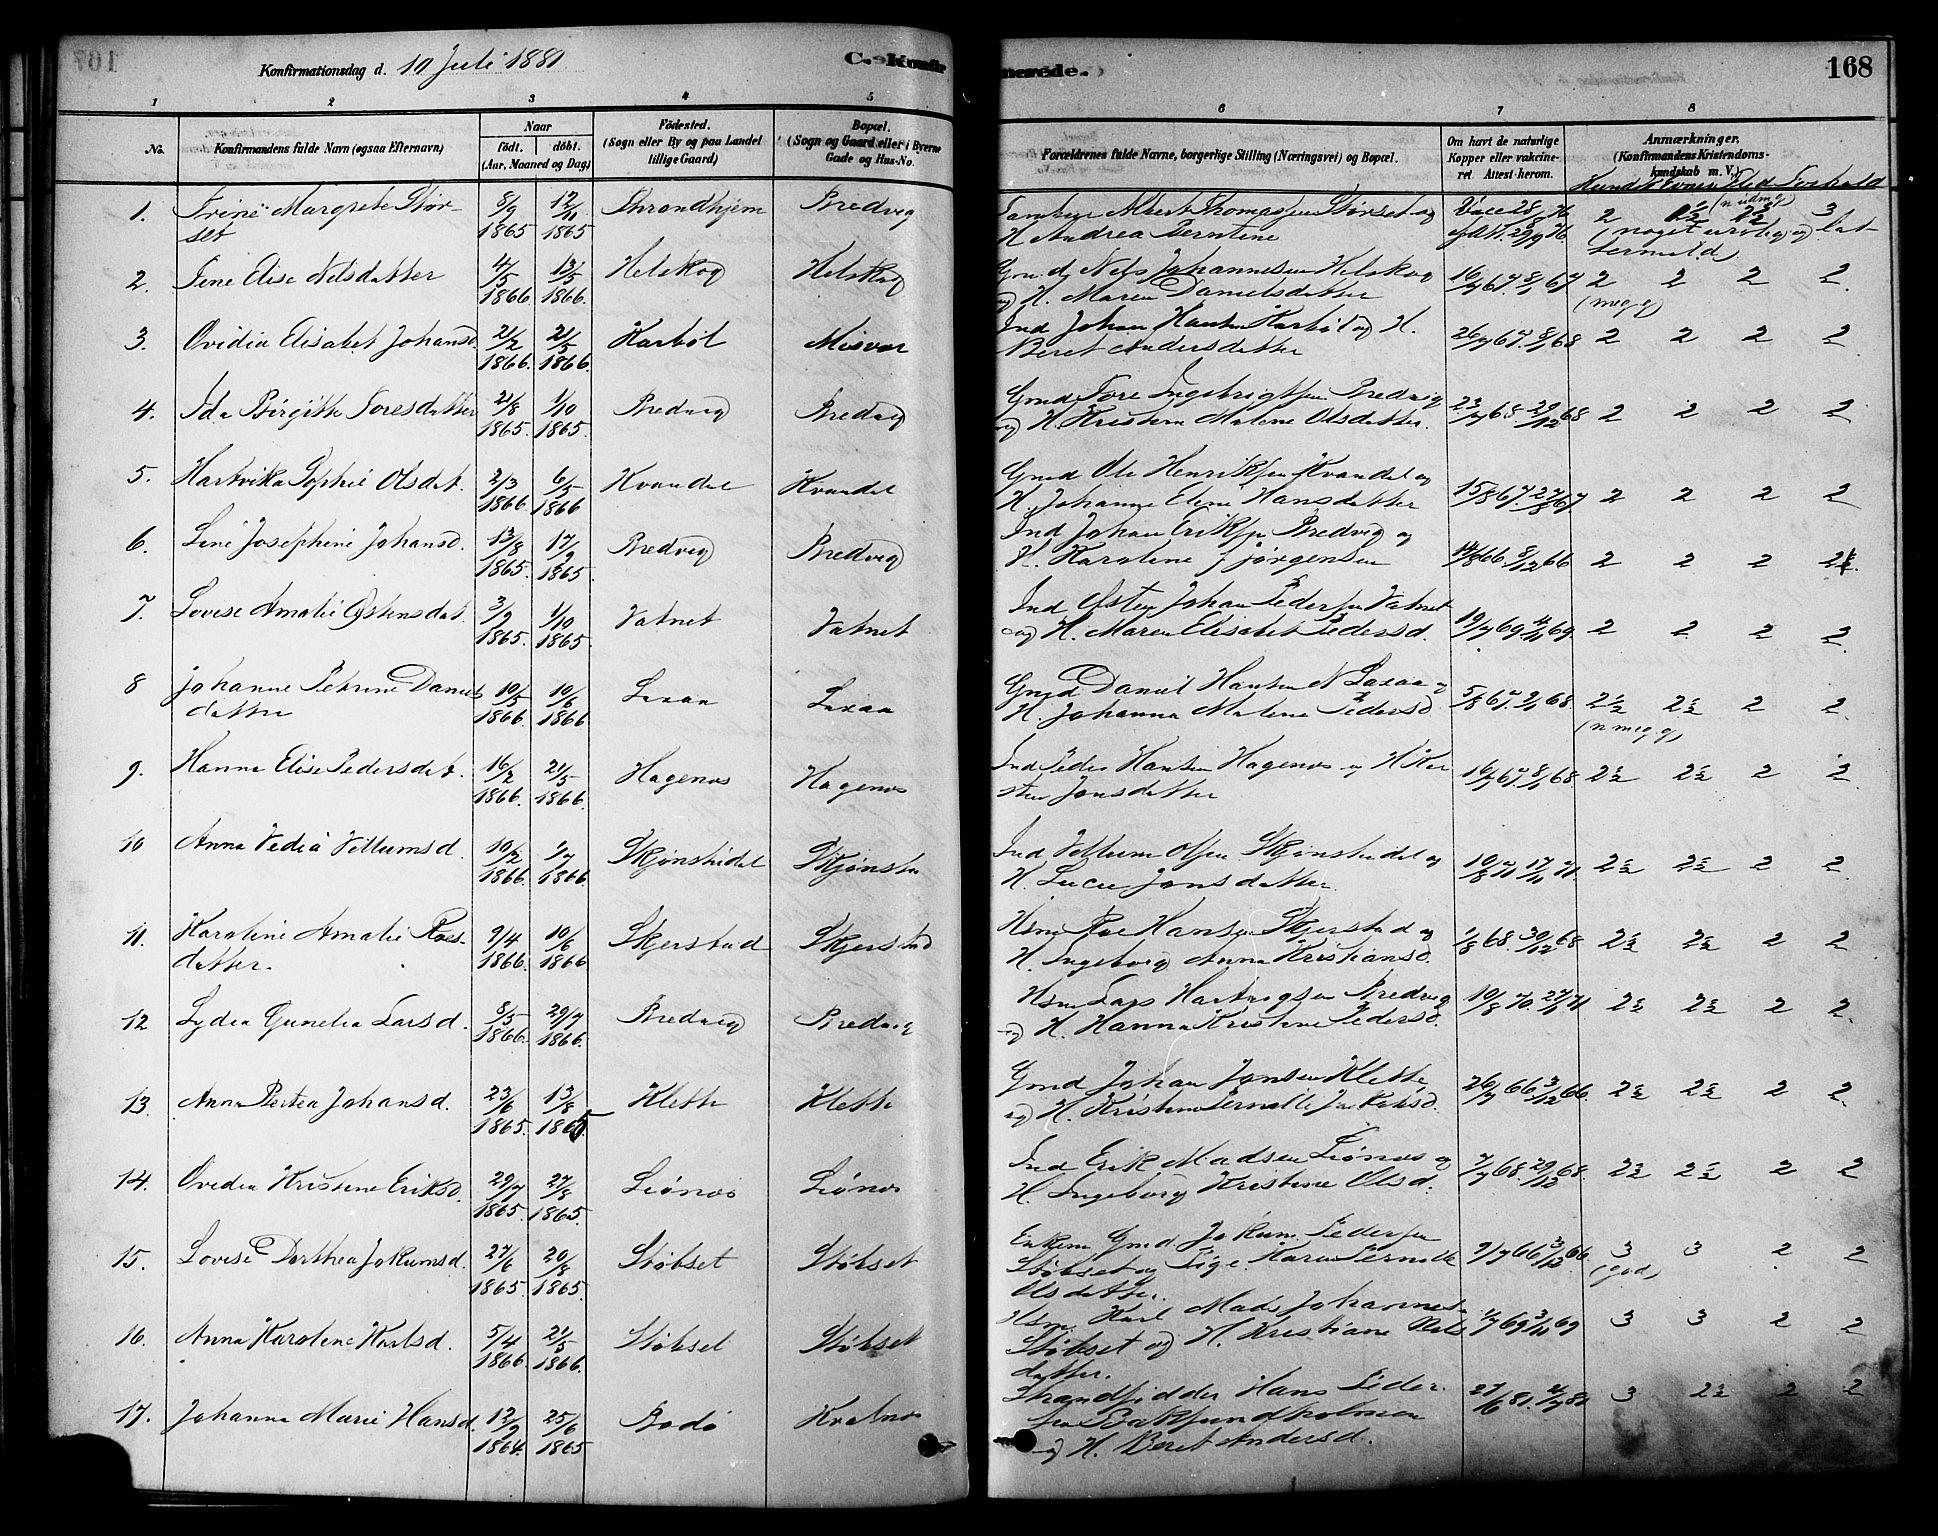 167
Konfirmationsdag d. 10 Juli 1881
C. Konfir
merede.
168
1 2 3 4 5 6 7 8
No.
Konfirmandens fulde Navn (ogsaa Efternavn)
Naar
født. døbt.
(Aar, Maaned og Dag)
Fødested.
(Sogn eller By og paa Landet
tillige Gaard)
Bopæl.
(Sogn og Gaard eller i Byerne
Gade og Hus-No.
Forældrenes fulde Navne, borgerlige Stilling (Næringsvei) og Bopæl.
Om havt de naturlige
Kopper eller vakcine-
ret Attest herom.
Anmærkninger.
(Konfirmandens Kristendoms-
kundskab m. V.)
Kundsk. Evner Flid Forhold
1. Trine Margrete Stør-
set
8/9 1865 12/10 1865 Throndhjem Bredvig
Albert Thomassen Størset og
H. Andrea Berntine
2. Lene Elise Nilsdatter 4/5 1866 13/5 1866. Helskog Helskog
Gmd Nils Johannesen Helskog
og H. Maren Danielsdatter
2 2 2 2
(meg g)
3. Ovidia Elisabet Johansd. 21/2 1866. 21/5 1866. Karbøl Misvær
Ind Johan Hansen Karbøl og H.
Beret Andersdatter
26/7 67. 8/1 68 2 2 2 2
4. Ida Birgitte Toresdatter 21/8 1865. 1/10 1865. Bredvig Bredvig
Gmd Tore Ingebrigtsen Bredvig
og H. Kristine Malene Olsdatter.
23/7 68 29/12 68 2 2 2 2
5. Hartvika Sophie Olsdat. 2/3 1866. 6/5 1866 Kvandal Kvandal
Gmd Ole Henriksen Kvandal og
H. Johanne Elene Hansdatter
15/8 67. 27/8 67. 2 2 2 2
6. Line Josephine Johansd. 13/8 1865. 17/9 1865. Bredvig Bredvig
Ind Johan Eriksen Bredvig og
H. Karoline Jørgensen
8/12 66 2 2 2 2
7. Lovise Amalie Østensdat. 3/9 1865. 1/10 1865. Vatnet Vatnet
Ind Østen Johan Pedersen Vatnet
og H. Maren Elisabet Pedersd.
19/7 69 4/11 69. 2 2 2 2
8 Johanne Petrine Daniels
datter
10/5 1866. 10/6 1866 Laxaa Laxaa
Gmd Daniel Hansen N Laxaa og
H. Johanna Malene Pedersd
2½ 2½ 2 2
(n meg g)
9. Hanna Elise Pedersdat. 16/2 1866. 21/5 1866. Hagenes Hagenes
Ind Peder Hansen Hagenes og H. Kir
stine Jonsdatter
16/7 67 8/1 68 2½ 2½ 2 2
10 Anna Vedia Vellumsd. 10/2 1866. 1/7 1866. Skjønstudal Skjønstu
Ind Vellum Olsen Skjønstudal og
H. Lucie Jonsdatter.
10/8 71 17/11 71. 2½ 2½ 2 2
11. Karoline Amalie Roes-
datter.
9/4 1866. 10/6 1866 Skjerstad Skjerstad
Hsm Roe Hansen Skjerstad og
H. Ingeborg Anna Kristiansd.
1/8 68. 30/12 68 2½ 2½ 2 2
12 Lydia Gunelia Larsd. 8/5 1866. 29/7 1866. Bredvig Bredvig
Hsm Lars Hartvigsen Bredvig
og H. Hanna Kristine Pedersd.
10/8 70. 27/11 71 2½ 2½ 2 2.
13. Anna Bertea Johansd. 23/6 1865. 13/8 1865 Klette Klette
Gmd Johan Jonsen Klette
og H. Kristine Pernille Jakobsd.
26/7 66 3/12 66. 2½ 2½ 2 2.
14. Ovedia Kristine Eriksd. 29/7 1865. 27/8 1865. Liønes Liønes
Ind Erik Madsen Liønes og
H. Ingeborg Kristine Olsd.
7/7 68 29/12 68. 2½ 2½ 2 2
15. Lovise Dorthea Jokumsd. 27/6 1865. 20/8 1865. Støbset Støbset
Enkem Gmd. Jokum Pedersen
Støbset og Pige Karen Pernille
Olsdatter.
9/7 66 3/12 66. 3 3 2 2
(god)
16. Anna Karoline Karlsd. 5/4 1866. 21/5 1866. Støbset Støbset
Hsm. Karl Mads Johannes.
Støbset og H. Kristiane Nils
datter.
3 3 2 2
17. Johanna Marie Hansd. 12/9 1864. 25/6 1865 Bodø Kvalnes
Strandsidder Hans Peder
sen
og H. Beret Andersd.
27/6 81. 3 2½ 2 2